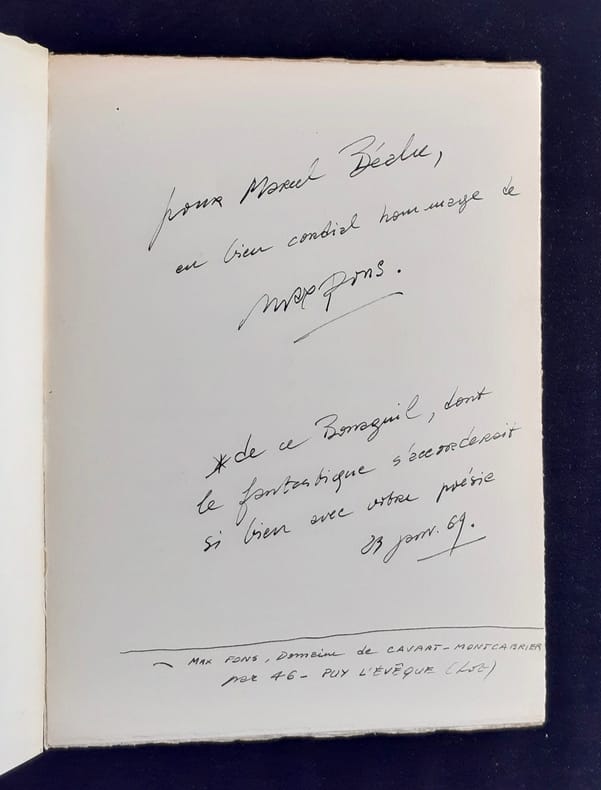 pour Marcel Béalu,
en bien cordial hommage de
Max Pons.
*de ce Bonaguil, dont
le fantastique s'accorderait
si bien avec votre poésie
23 janv. 69.
— MAX PONS, Domaine de CAVART-MONTCABRIER
par 46 - PUY L'ÉVÊQUE (Lot)